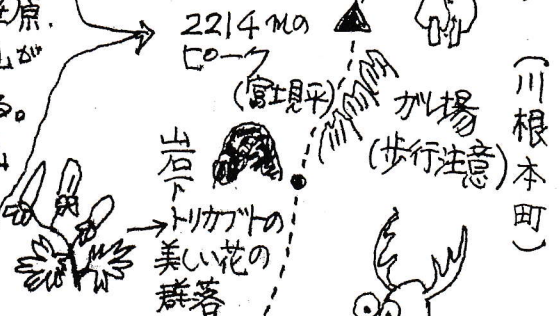 2214mの
ピーク
(富士見平)
ガレ場
(歩行注意)
(川根本町)
岩下
トリカブトの
美しい花の
群落
原.
が
る。